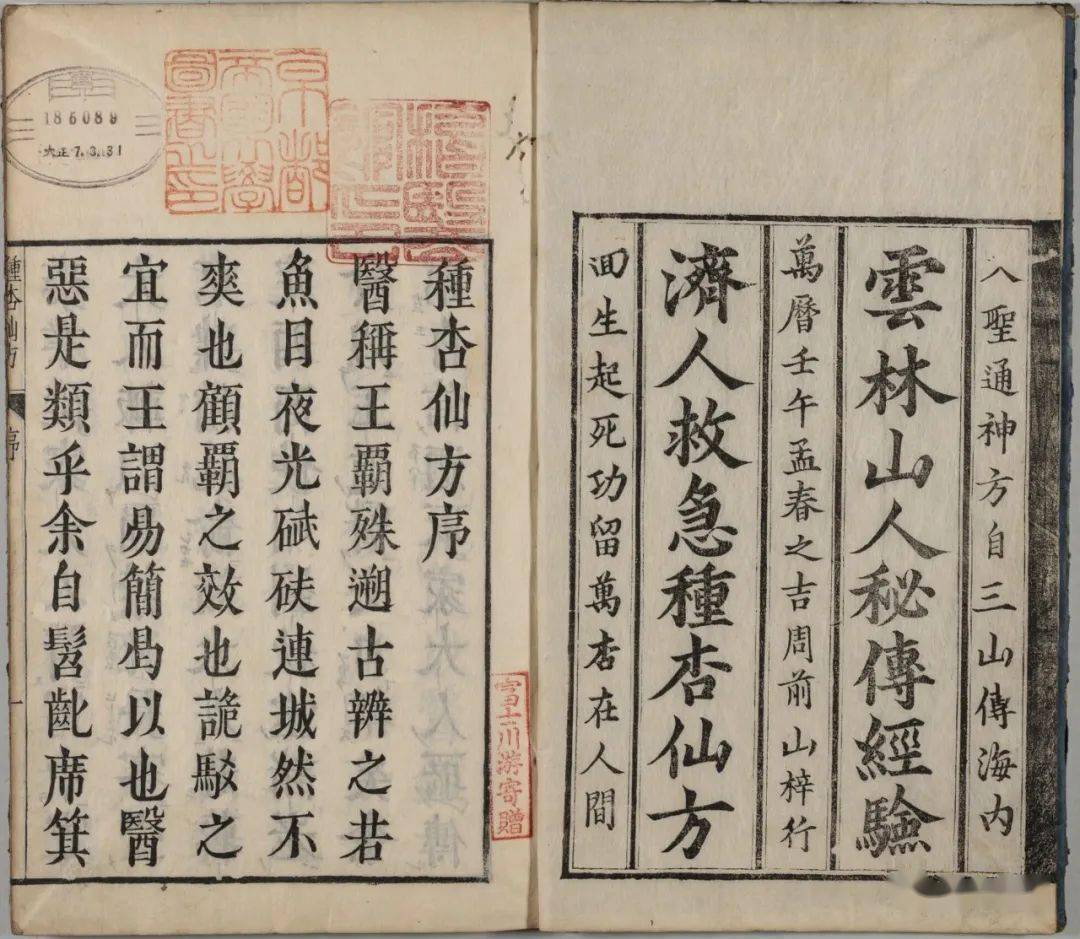 入聖通神方自三山傳海内
雲林山人秘傳經驗
萬曆壬午孟春之吉周前山梓行
濟人救急種杏仙方
囬生起死功留萬杏在人間
富士川游寄贈
京都
帝國大學
圖書之印
186089
大正7.3.31
種杏仙方序
醫稱王覇殊遡古辨之若
魚目夜光碔砆連城然不
爽也顧覇之效也詭駁之
宜而王謂易簡曷以也醫
惡是類乎余自髫齔席箕
種杏仙方 序 一